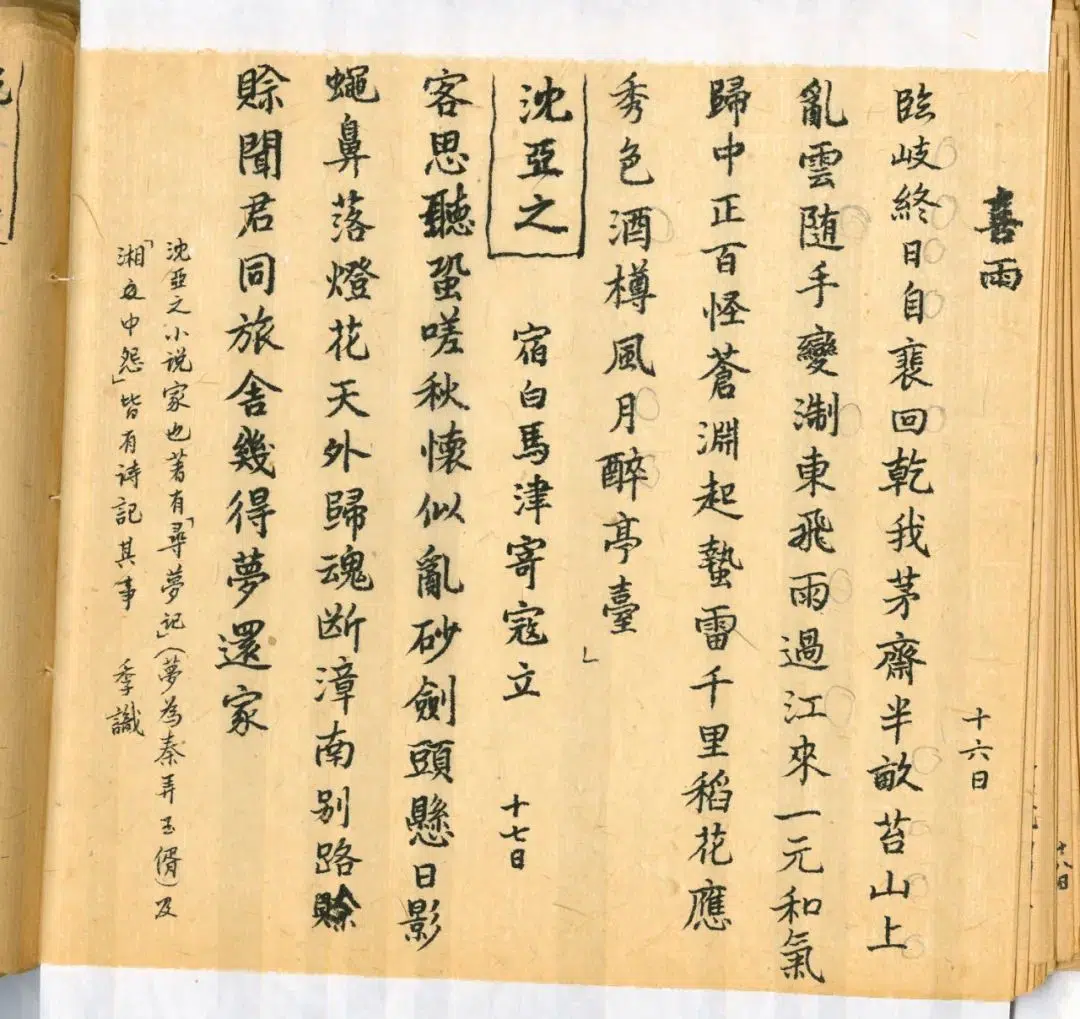 喜雨
十六日
臨岐終日自裴回乾我茅齋半畝苔山上
亂雲随手變淛東飛雨過江來一元和氣
歸中正百怪蒼淵起蟄雷千里稻花應
秀色酒樽風月醉亭臺」
沈亞之
宿白馬津寄寇立
十七日
客思聽蛩嗟秋懷似亂砂劍頭懸日影
蠅鼻落燈花天外歸魂断漳南别路賒
賒聞君同旅舍幾得夢還家
沈亞之小说家也著有「尋夢記」(夢為秦弄玉偦)及
「湘中怨」皆有诗記其事 季識
十八日